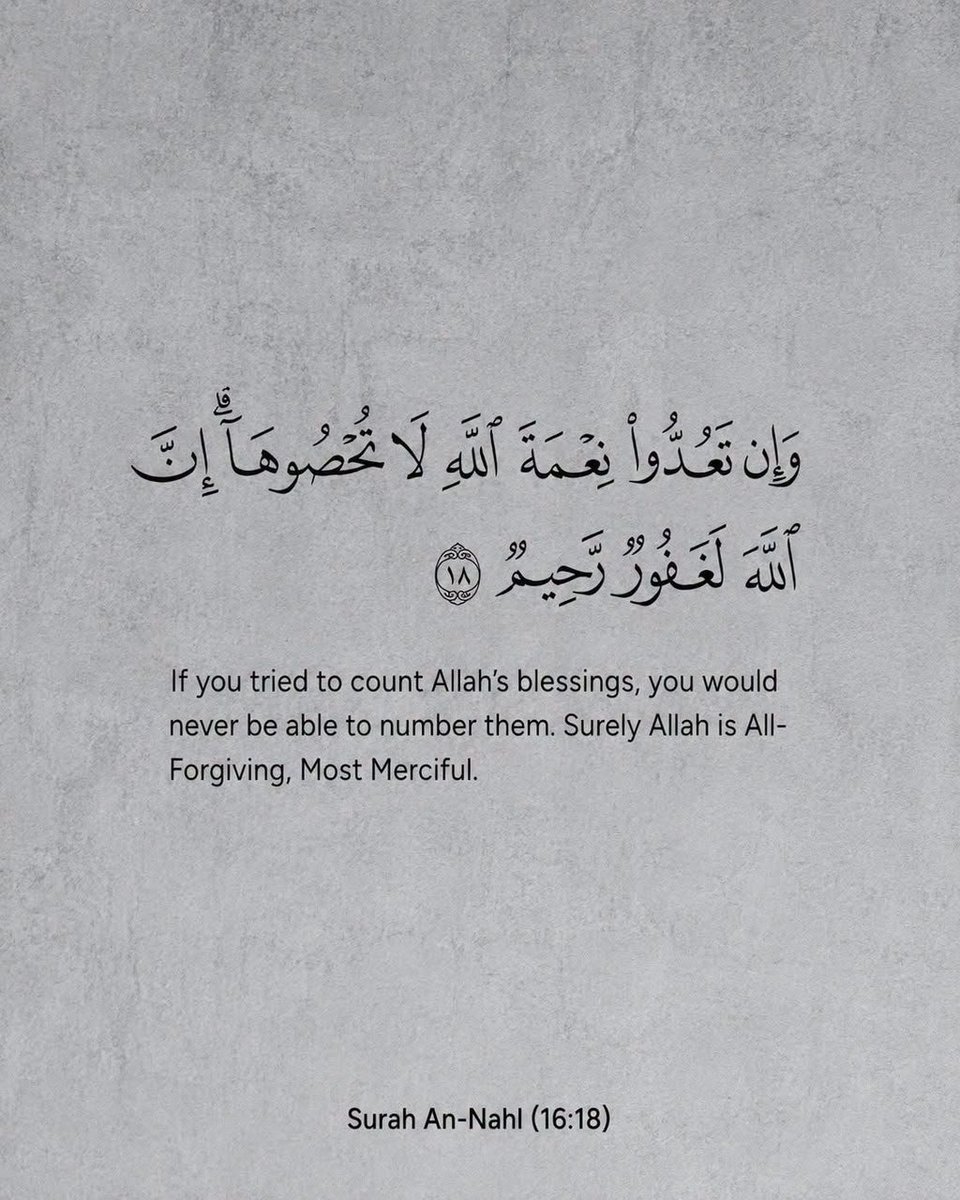 وَإِن تَعُدُّوا۟ نِعْمَةَ ٱللَّهِ لَا تُحْصُوهَآ ۗ إِنَّ
ٱللَّهَ لَغَفُورٌ رَّحِيمٌ ١٨
If you tried to count Allah’s blessings, you would
never be able to number them. Surely Allah is All-
Forgiving, Most Merciful.
Surah An-Nahl (16:18)